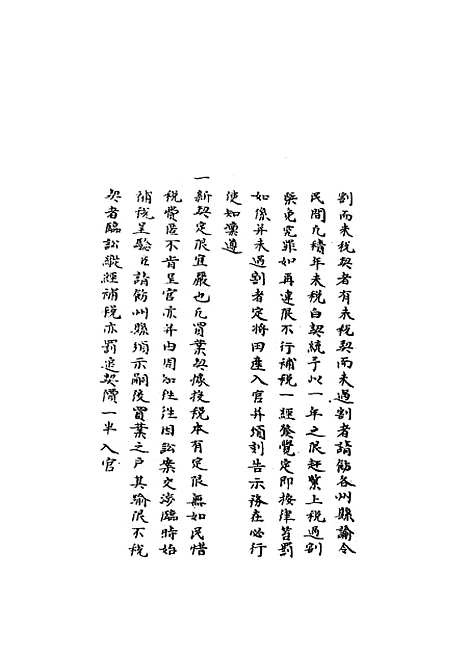 割而未稅契者有未稅契而未過割者請飭各州縣諭令
民間凡積年未稅白契統予以一年之限趕緊上稅過割
槩免究罪如再違限不行補稅一經發覺定即按律笞罰
如係并未過割者定將田產入官并頒刻告示務在必行
使知凜遵
一新契定限宜嚴也凡買業契據投稅本有定限無如民惜
稅費匿不肯呈官亦并由因加往往因訟案交涉臨時始
補稅呈驗者請飭州縣頒示嗣後買業之戶其踰限不稅
契者臨訟縱經補稅亦罰追契價一半入官